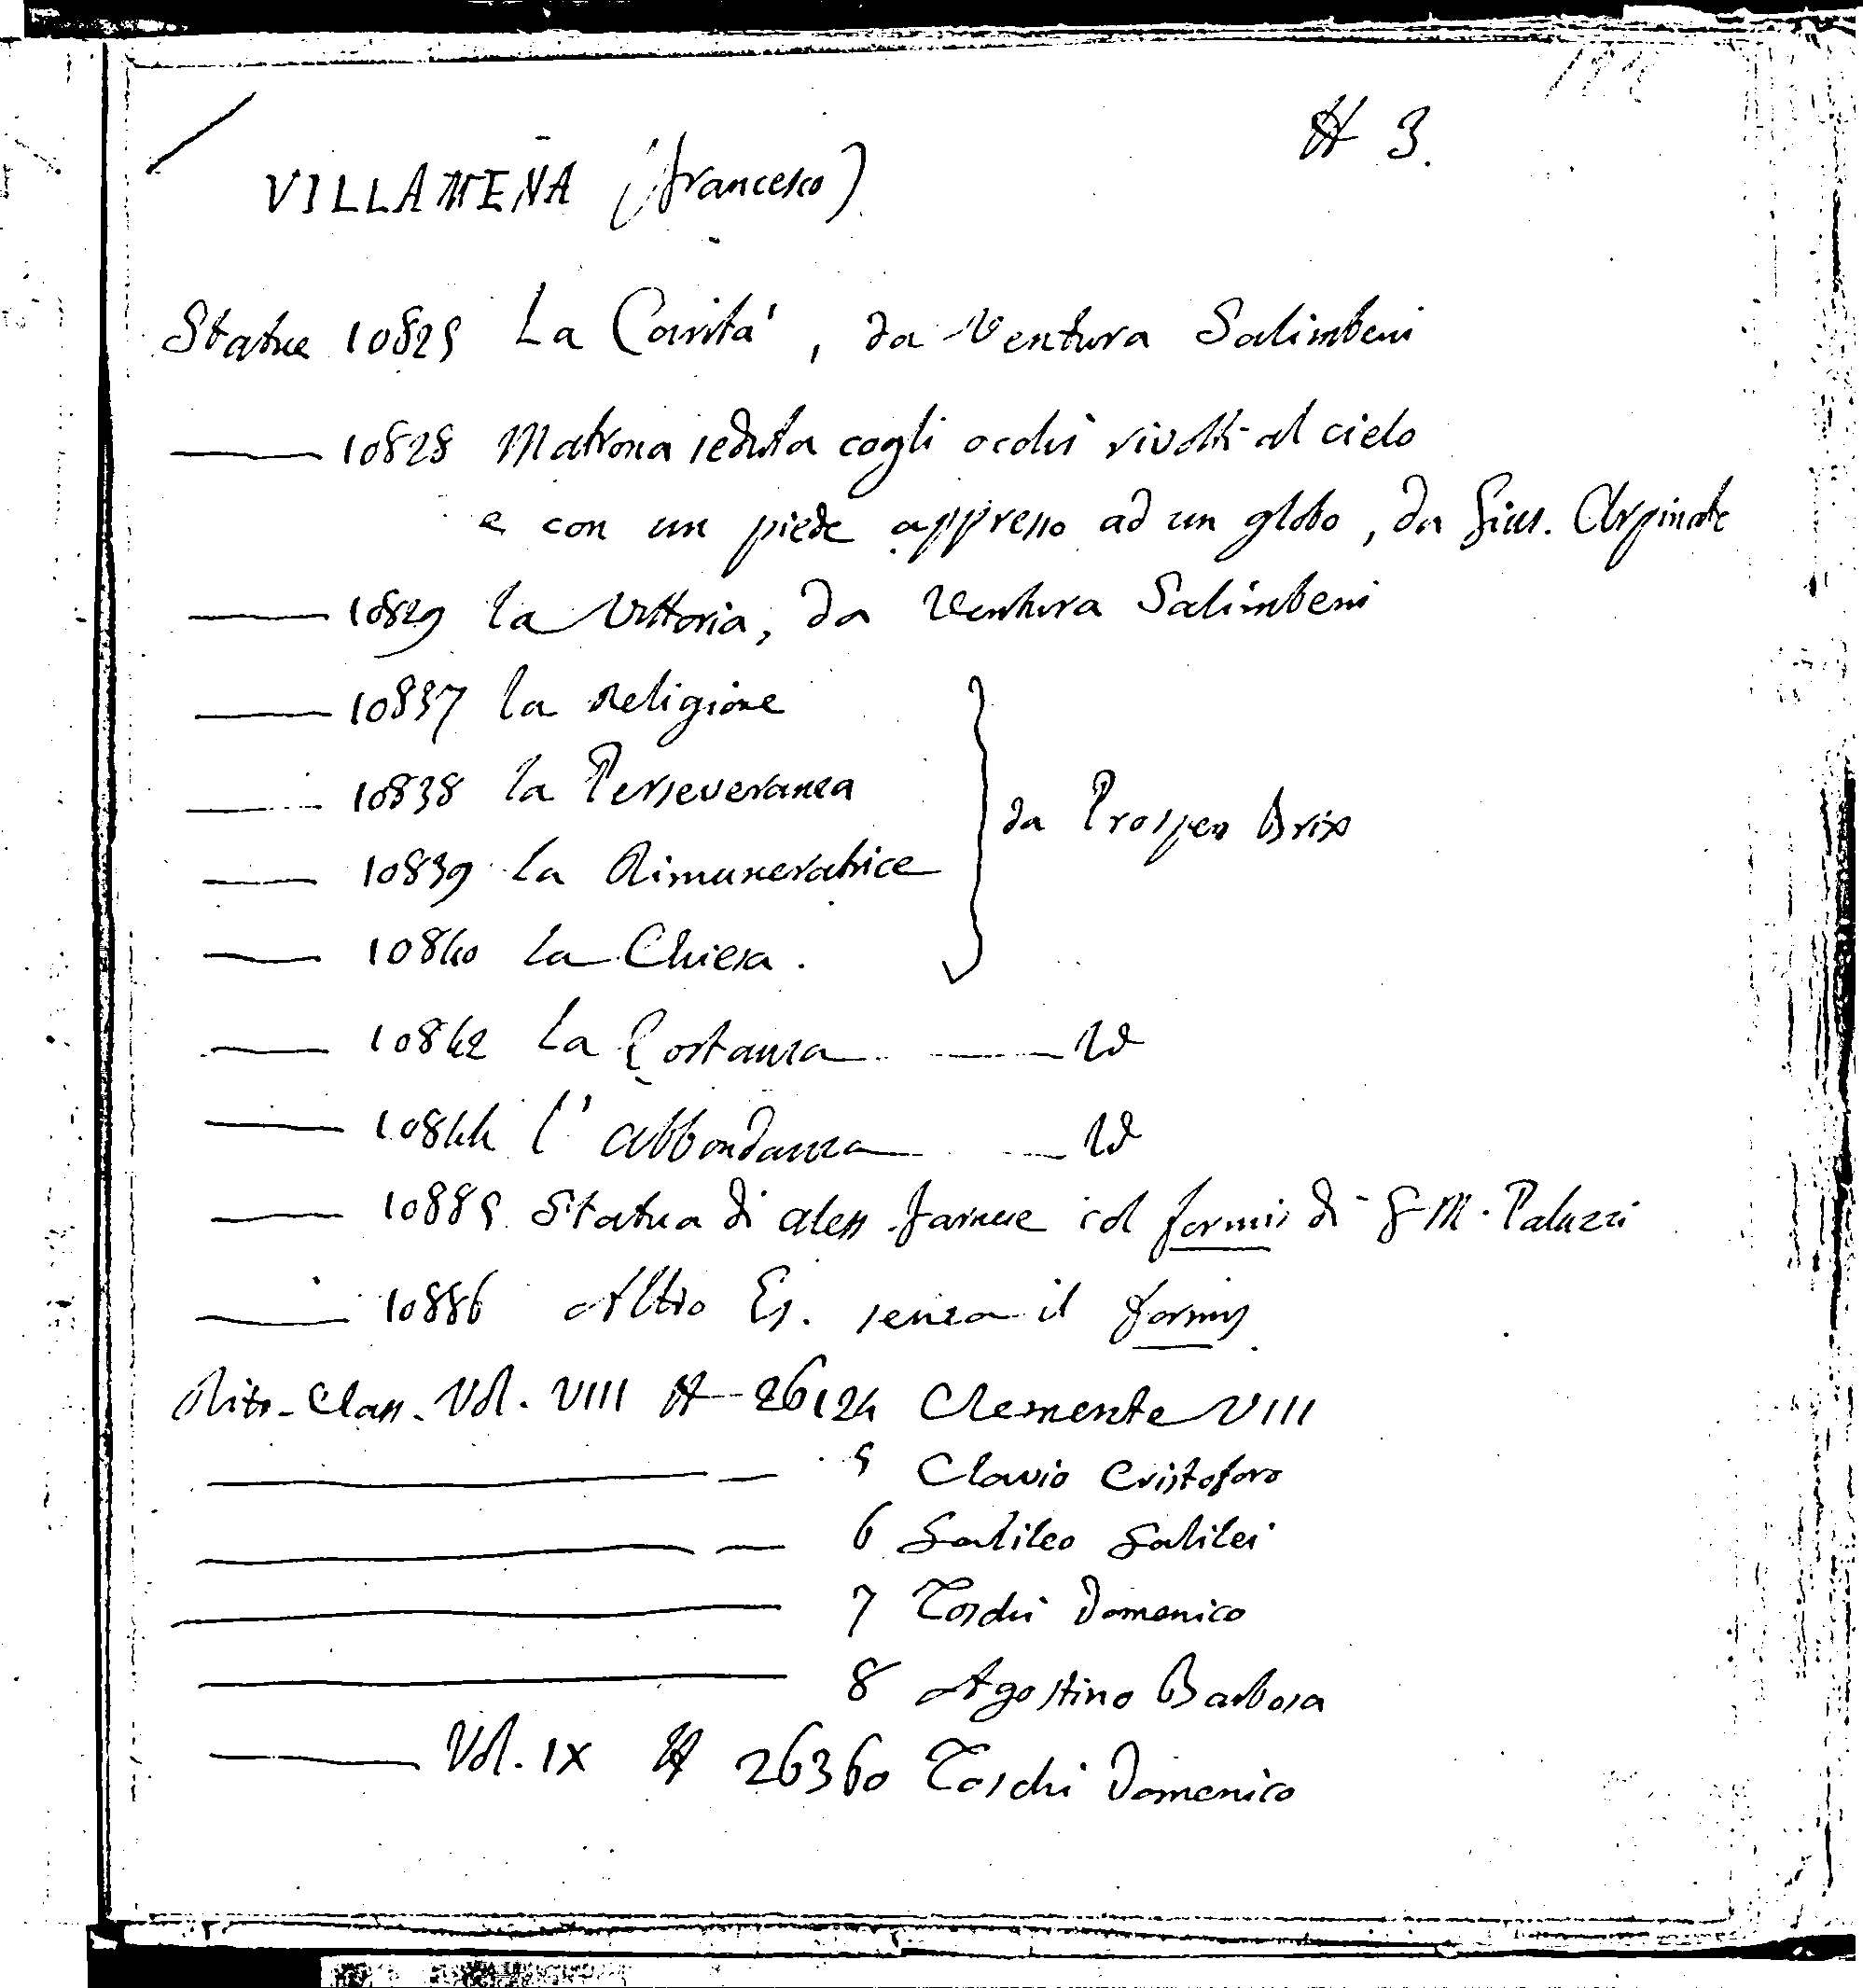 # 3.
VILLAMENA (Francesco)
Statue 10825 La Carità, da Ventura Salimbeni
—— 10828 Matrona seduta cogli occhi rivolti al cielo
e con un piede appresso ad un globo, da Gius. Arpinate
—— 10829 La Vittoria, da Ventura Salimbeni
—— 10837 La Religione
—— 10838 La Perseveranza
da Prospero Brix
—— 10839 La Rimuneratrice
—— 10840 La Chiesa.
—— 10842 La Costanza —— Id
—— 10844 L'abbondanza —— Id
—— 10885 Statua di Aless. Farnese col formis di G. M. Paluzzi
—— 10886 Altro Es. senza il formis
Ritr. Class. Vol. VIII # 26124 Clemente VIII
—— 5 Clavio Cristoforo
—— 6 Galileo Galilei
—— 7 Toschi Domenico
—— 8 Agostino Barbosa
—— Vol. IX # 26360 Toschi Domenico